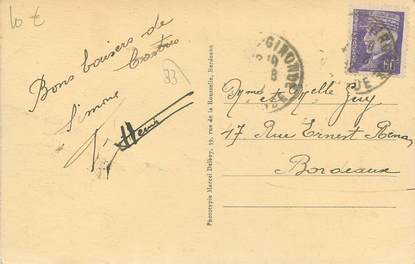 10 €
Bons baisers de
Castres
33
Simone
Phototypie Marcel Delboy, 29, rue de la Rousselle, Bordeaux
GIRONDE
Mme et Melle Guy
47 Rue Ernest Renan
Bordeaux